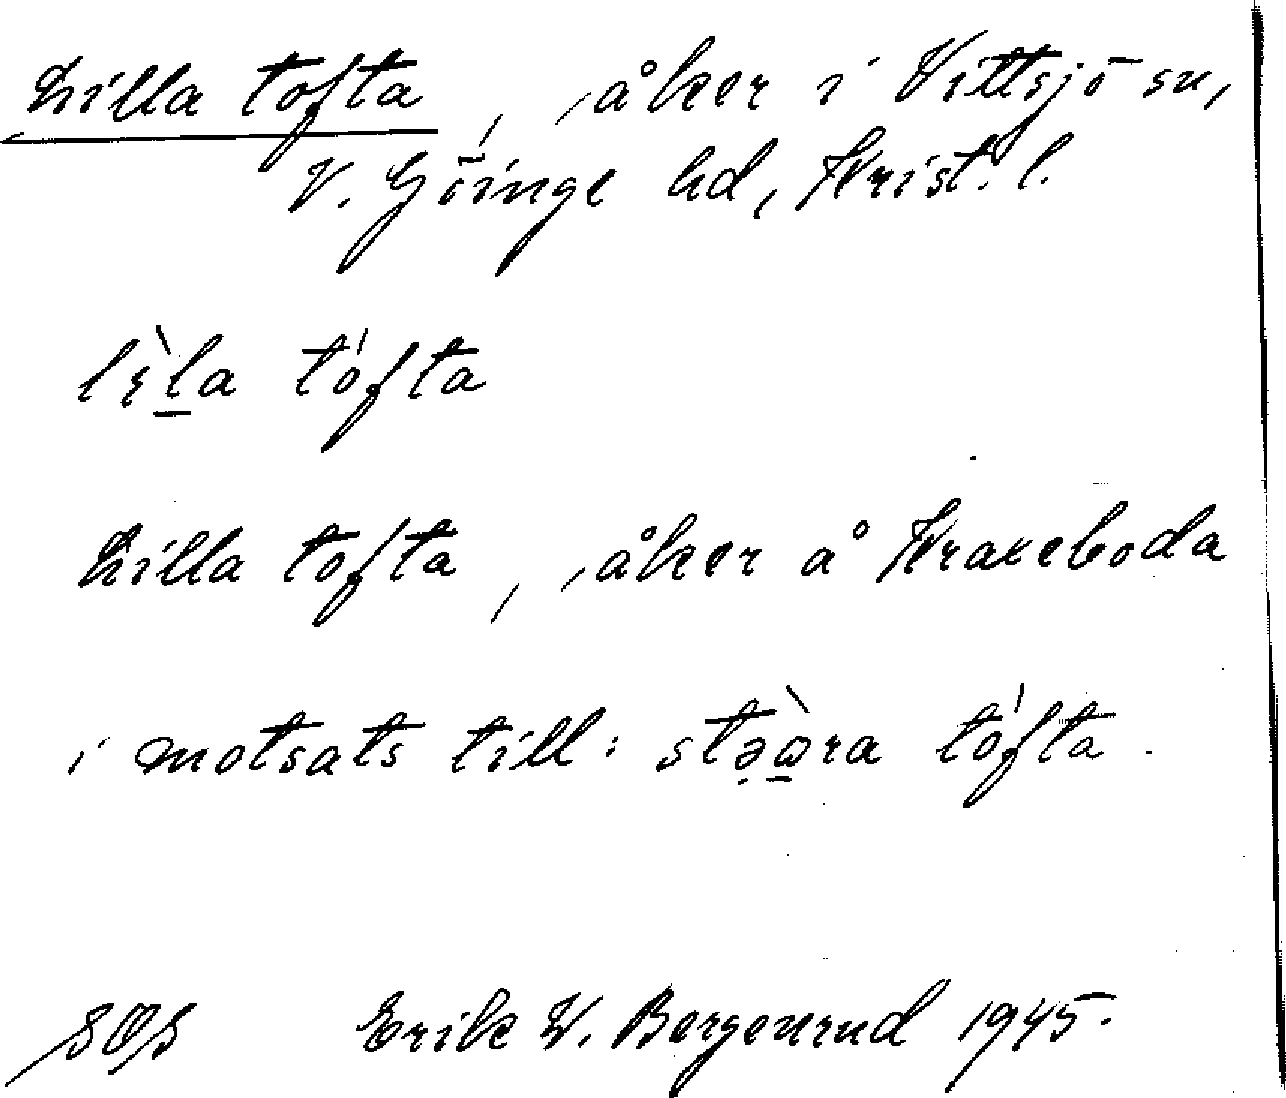 Lilla tofta, åker i Vittsjö sn,
V. Göinge hd, Krist. l.
lìla tófta
Lilla tofta, åker å Krakeboda
i motsats till: stəὼra tófta.
SOS Erik W. Bergenrud 1945.